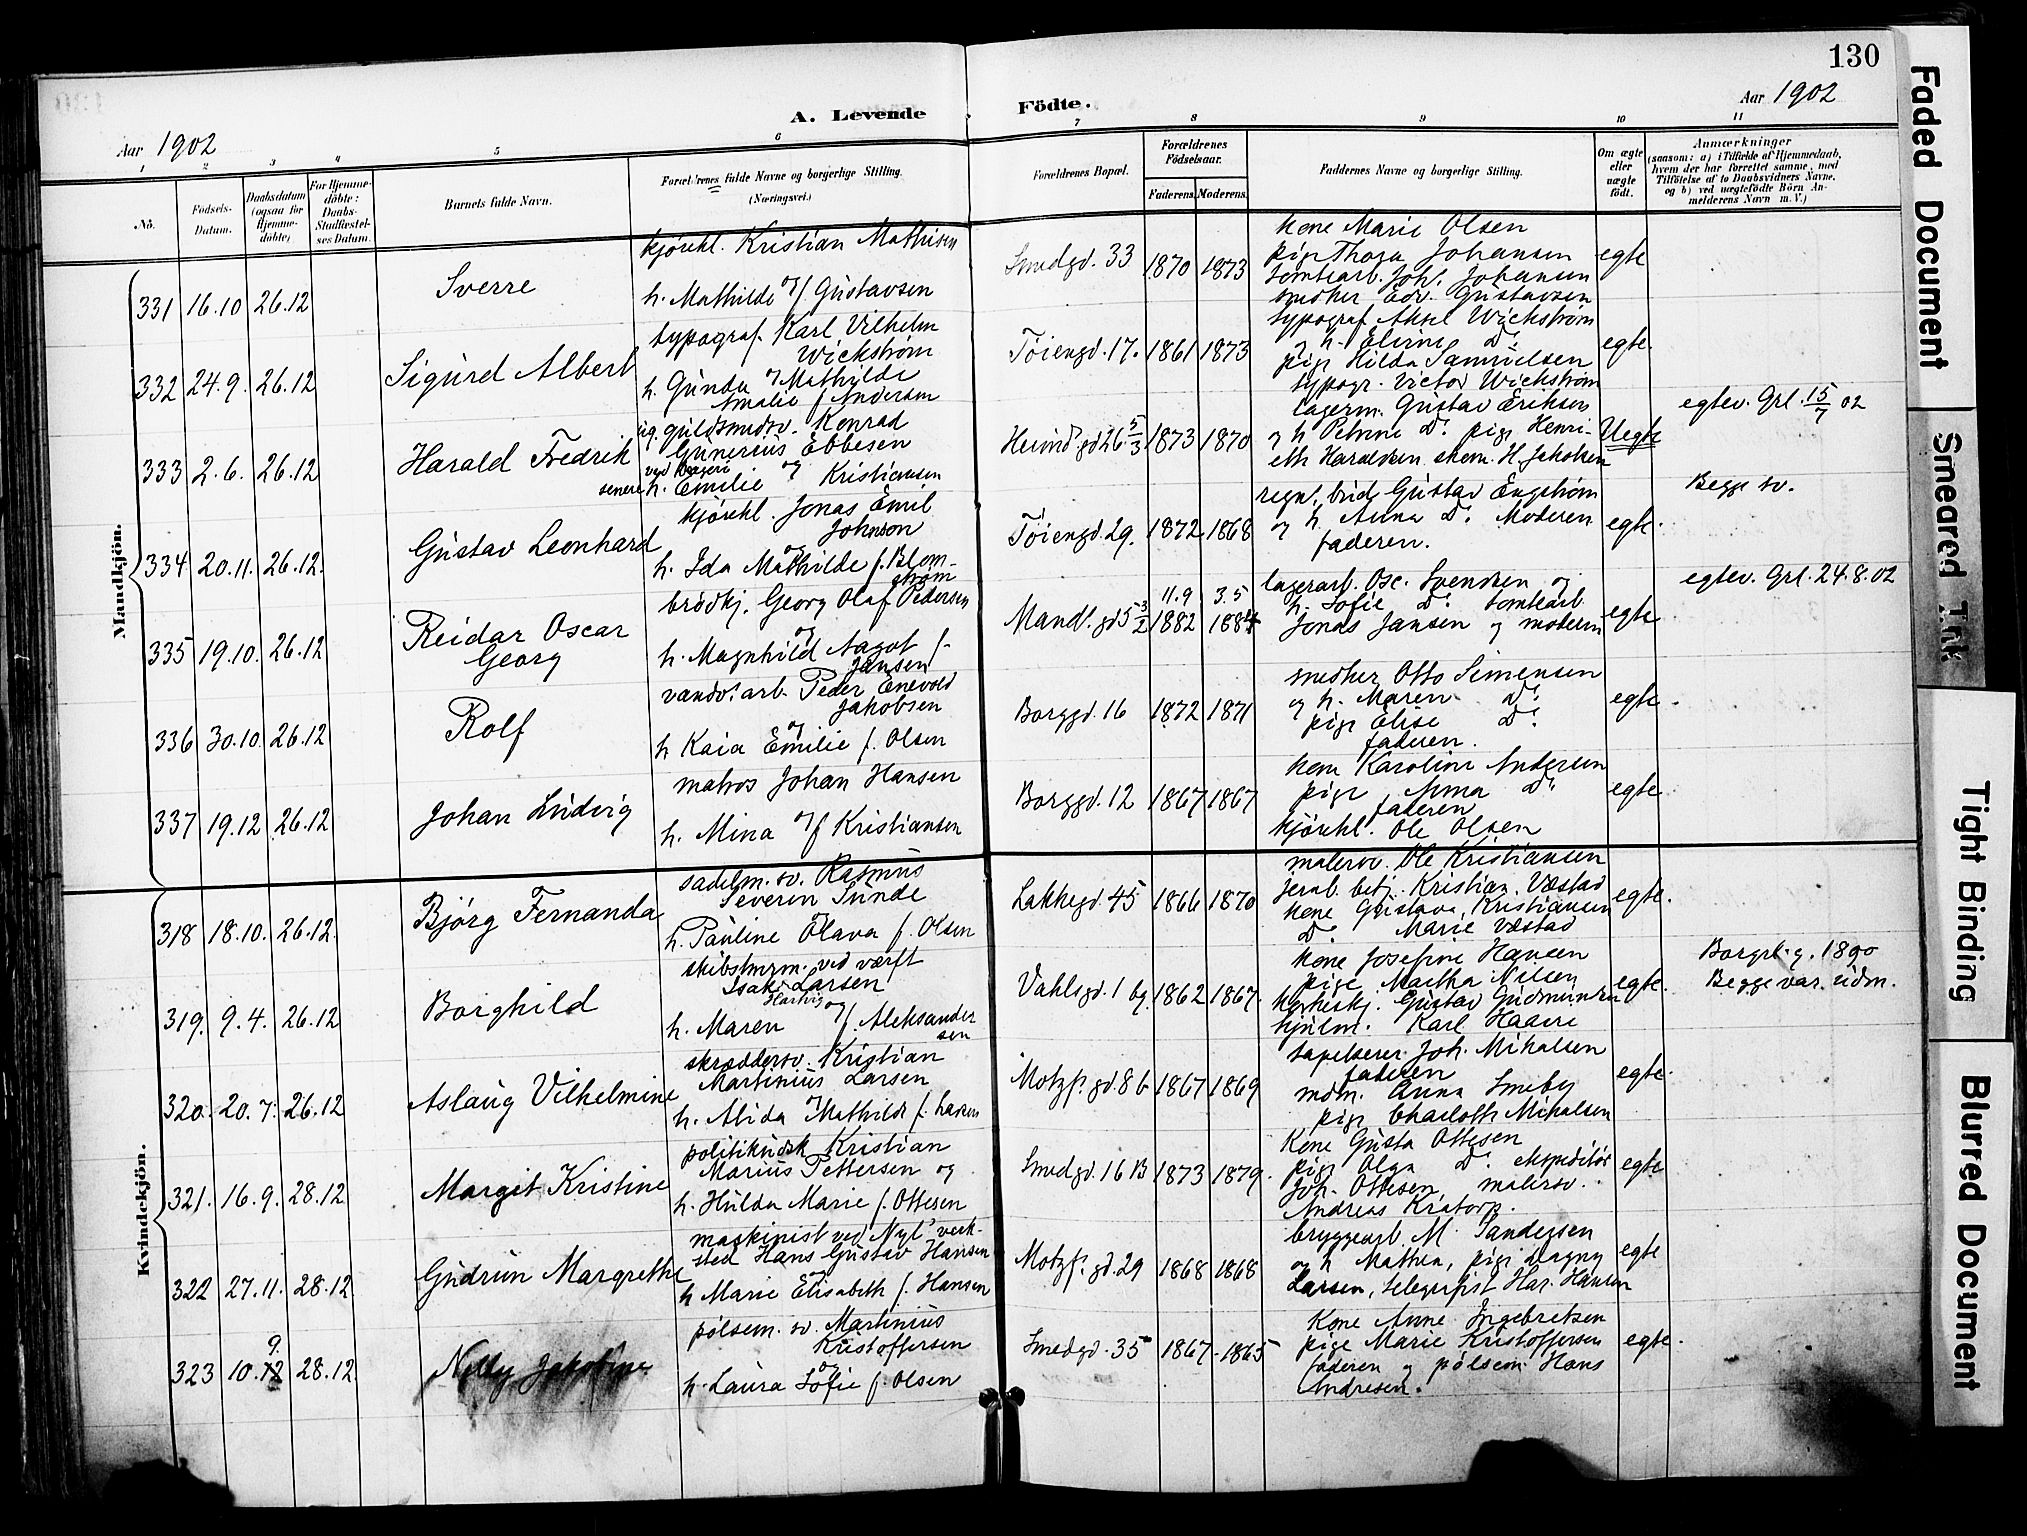 130
A. Levende Födte.
Aar 1902
Aar 1902
1 2 3 4 5 6 7 8 9 10 11
No.
Födsels-Datum.
Daabsdatum (ogsaa for Hjemme-döbte)
For Hjemme-döbte: Daabs-Stadfæstel-ses Datum.
Barnets fulde Navn.
Forældrenes fulde Navne og borgerlige Stilling. (Næringsvei.)
Forældrenes Bopæl.
Forældrenes Födselsaar.
Faderens. Moderens.
Faddernes Navne og borgerlige Stilling.
Om ægte eller uægte födt.
Anmærkninger
(saasom: a) i Tilfælde af Hjemmedaab, hvem der har forrettet samme, med Tilföielse af to Daabsvidners Navne, og b) ved uægtefödte Börn An-melderens Navn m. V.)
Mandkjön.
331 16.10 26.12
Sverre
kjörekl. Kristian Mathisen
h. Mathilde f. Gustavsen
Smedgd. 33 1870 1873
Kone Marie Olsen
pige Thora Johansen
tomtearb. Joh. Johansen
snedker Edv. Gustavsen
egte
332 24.9. 26.12
Sigurd Albert
typograf. Karl Vilhelm
Wickström
h. Gunda Mathilde
Amalie f. Andersen
Töiengd. 17. 1861 1873
typograf Aksel Wickström
og h. Elvine Do.
pige Hilda Samuelsen
typogr. Victor Wickström
egte.
333 2.6. 26.12
Harald Fredrik
guldsmedsv. Konrad
Gunerius Ebbesen
senere h. Emilie Kristiansen
Heimd. gd 26 5/3 1873 1870
lagerm. Gustav Eriksen
og h Petrine Do. pige Henri-
eth Haraldsen skom. H. Jakobsen
Uegte
egtev. Grl. 15/7 02
334 20.11. 26.12.
Gustav Leonhard
kjörekl. Jonas Emil
Johnson
og
h. Ida Mathilde f. Blom-
ström
Töiengd. 29. 1872 1868
Gustav Engström
og h. Anna Do. Moderen
faderen.
egte.
Begge sv.
335 19.10. 26.12
Reidar Oscar
Georg
brödkj. Georg Olaf Pedersen
og
h. Magnhild Aagot f.
Jansen
Mand. gd 5 3/2 11.9 1882 3.5 1884
lagerarb. Osc. Svendsen og
h. Sofie Do. tomtearb.
Jonas Jansen og moderen
egte
egtev. Grl. 24.8.02
336 30.10. 26.12
Rolf
vandv. arb. Peder Enevold
Jakobsen
og
h Kaia Emilie f. Olsen
Borggd. 16 1872 1871
snedker Otto Simensen
og h. Maren Do.
pige Elise Do.
faderen.
egte.
337 19.12 26.12
Johan Ludvig
matros Johan Hansen
h. Mina f Kristiansen
Borggd. 12 1867 1867
Kone Karoline Andersen
pige Anna Do.
faderen
kjörekl. Ole Olsen
egte
Kvindekjön.
318 18.10. 26.12.
Björg Fernanda
sadelm. sv. Rasmus
Severin Sunde
h. Pauline Olava f. Olsen
Lakkegd. 45 1866 1870
malersv. Ole Kristiansen
jernb. betj. Kristian Væstad
Kone Gustava Kristiansen
Do. Marie Væstad
egte.
319. 9.4. 26.12
Borghild
skibstmrm. ved værft
Isak Larsen
Hartvig og
h. Maren f Aleksander
sen
Vahlsgd. 1 bg. 1862 1867.
Kone Josefine Hansen
pige Martha Nilsen
Gustav Gudmundsen
Karl Haare
egte.
Borgerlig. 1890
Begge var. udm.
320. 20.7. 26.12
Aslaug Vilhelmine
skræddersv. Kristian
Martinius Larsen
og
h. Alida Mathilde f. Larsen
Motzf. gd. 8 b 1867 1869
tapetserer. Joh. Mikalsen
faderen
mdm. Anna Smeby
pige Charloth Mikalsen
egte.
321. 16.9. 28.12
Margit Kristine
politikudsk Kristian
Marius Pettersen og
h. Hulda Marie f. Ottesen
Smedgd. 16 B 1873 1879.
Kone Gusta Ottesen
pige Olga Do. ekspeditör
Joh. Ottesen, malersv.
Andreas Kratorp.
egte
322 27.11. 28.12
Gudrun Margrethe
maskinist ved Nyl. verk-
sted Hans Gustav Hansen
og
h Marie Elisabeth f. Hansen
Motzf. gd. 29 1868 1868
bryggearb. M. Sandersen
og h Mathea, pige Dagny
Larsen, telegrafist Har. Hansen
egte
323 10.9. 28.12
Nelly Jakobine
pölsem. sv. Martinius
Kristoffersen
og
h. Laura Sofie f. Olsen
Smedgd. 35 1867. 1865
Kone Anne Ingebretsen
pige Marie Kristoffersen
faderen og pölsem. Hans
Andresen.
egte.
Faded Document
Smeared Ink
Tight Binding
Blurred Document